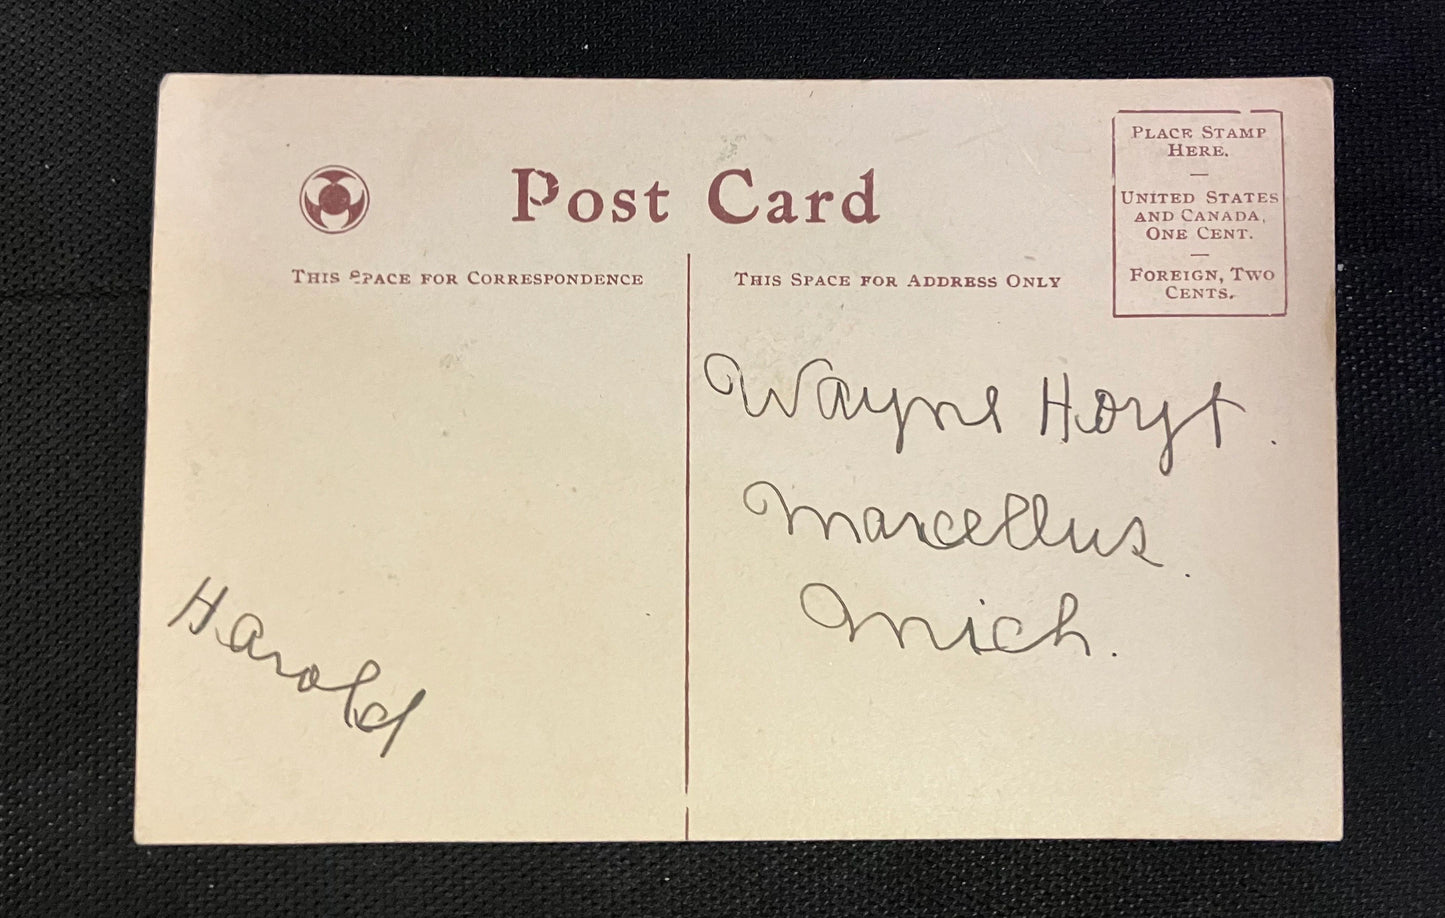 Post Card
THIS SPACE FOR CORRESPONDENCE
THIS SPACE FOR ADDRESS ONLY
PLACE STAMP
HERE.
—
UNITED STATES
AND CANADA,
ONE CENT.
—
FOREIGN, TWO
CENTS.
Harold
Wayne Hoyt.
Marcellus.
Mich.